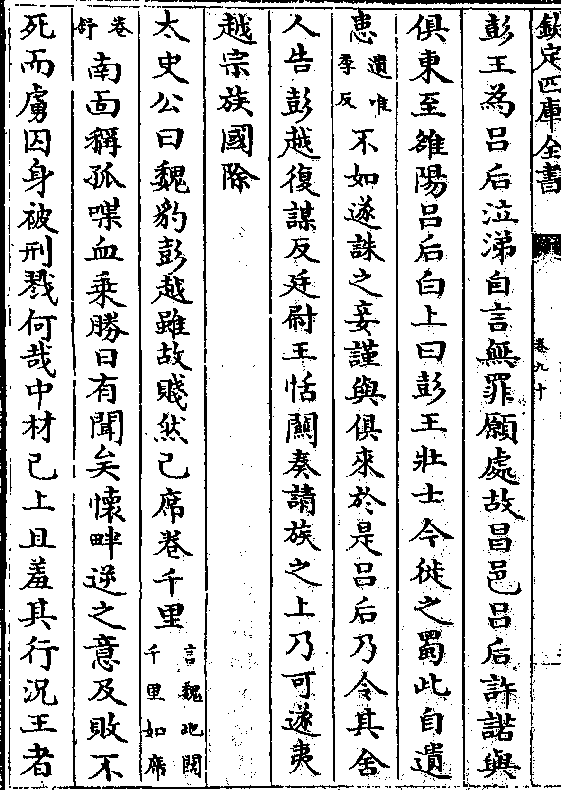 欽定四庫全書 卷九十
彭王為呂后泣涕自言無罪願處故昌邑呂后許諾與
俱東至雒陽呂后白上曰彭王壯士今徙之蜀此自遺
患遺唯季反不如遂誅之妾謹與俱來於是呂后乃令其舍
人告彭越復謀反廷尉王恬關奏請族之上乃可遂夷
越宗族國除
太史公曰魏豹彭越雖故賤然已席卷千里言魏地闊千里如席
卷舒南面稱孤喋血乘勝日有聞矣懷畔逆之意及敗不
死而虜囚身被刑戮何哉中材已上且羞其行況王者